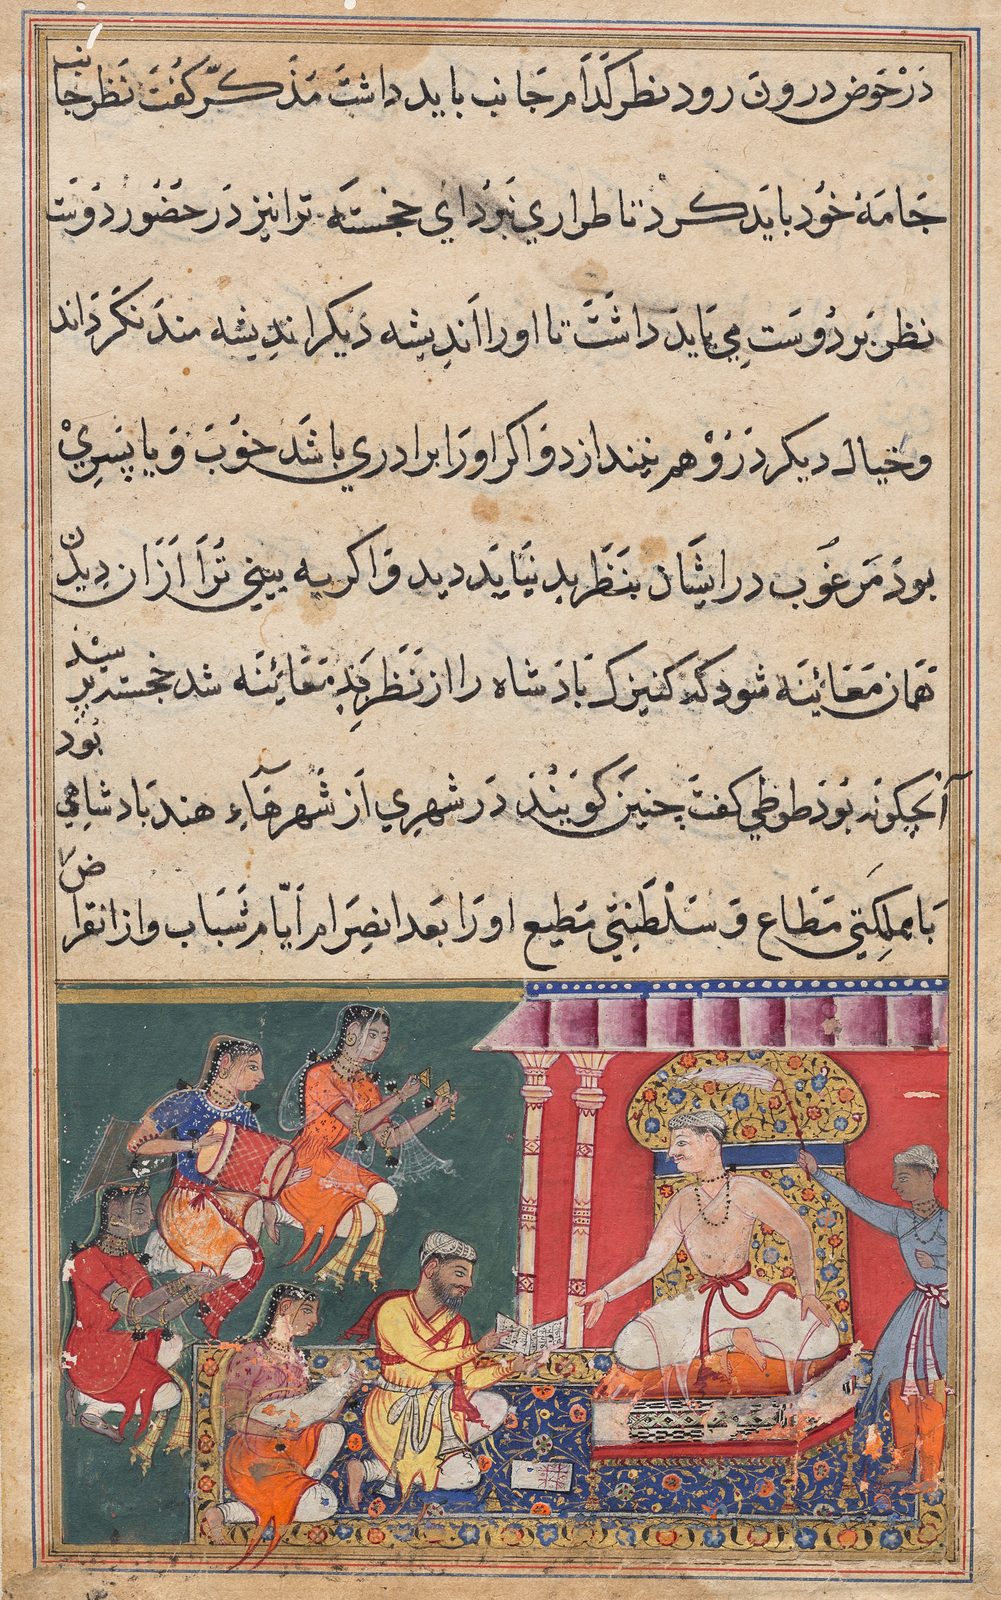 در حوض درون رود نظر کدام جانب باید داشت مذکر گفت نظر جانب
جامهٔ خود باید کرد تا طراری نبرد ای خجسته ترا نیز در حضور دوست
نظر بر دوست می باید داشت تا او را اندیشه دیگر اندیشه مند نگرداند
و خیال دیگر در و هم نیندازد و اگر او را برادری باشد خوب و یا پسری
بود مرغوب در ایشان بنظر بد نباید دید و اگر به بینی ترا از ان دیدن
همان معائینه شود که کنیزک بادشاه را از نظر بد معائینه شد خجسته پرسید
آن چگونه بود طوطی گفت چنین گویند در شهری از شهرهاء هند بادشاهی بود
با مملکتی مطاع و سلطنتی مطیع او را بعد انصرام ایام شباب و از انقراض